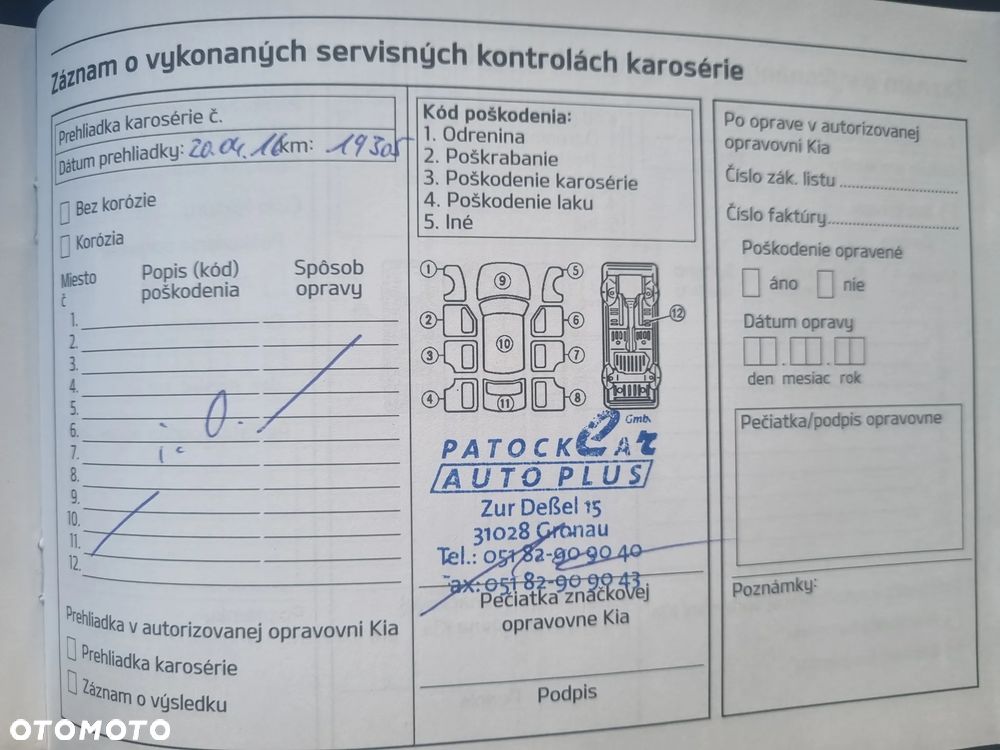 Záznam o vykonaných servisných kontrolách karosérie
Prehliadka karosérie č.
Dátum prehliadky: 20.04.16 km: 19305
Bez korózie
Korózia
Miesto č
Popis (kód) poškodenia
Spôsob opravy
1.
2.
3.
4.
5.
6.
7.
8.
9.
10.
11.
12.
i. O.
Prehliadka v autorizovanej opravovni Kia
Prehliadka karosérie
Záznam o výsledku
Kód poškodenia:
1. Odrenina
2. Poškrabanie
3. Poškodenie karosérie
4. Poškodenie laku
5. Iné
1
2
3
4
5
6
7
8
9
10
11
12
PATOCK CAR GmbH
AUTO PLUS
Zur Deßel 15
31028 Gronau
Tel.: 051 82-90 90 40
Fax: 051 82-90 90 43
Pečiatka značkovej
opravovne Kia
Podpis
Po oprave v autorizovanej
opravovni Kia
Číslo zák. listu
Číslo faktúry
Poškodenie opravené
áno nie
Dátum opravy
den mesiac rok
Pečiatka/podpis opravovne
Poznámky:
OTOMOTO